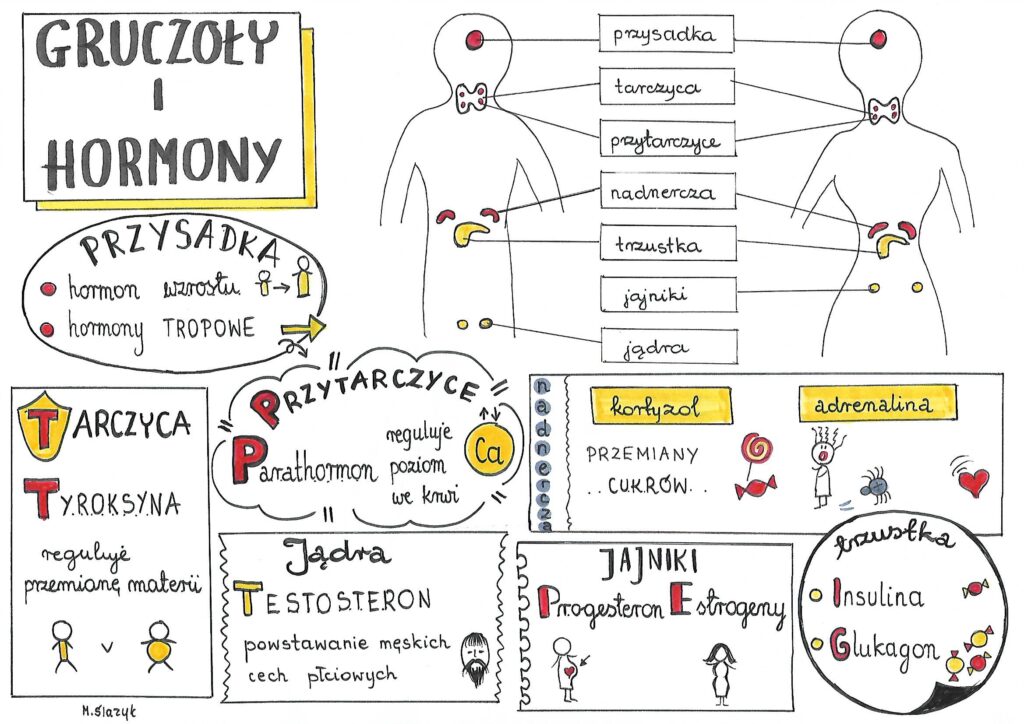 GRUCZOŁY
I
HORMONY
przysadka
tarczyca
przytarczyce
nadnercza
trzustka
jajniki
jądra
PRZYSADKA
hormon wzrostu
hormony TROPOWE
TARCZYCA
TYROKSYNA
reguluje
przemianę materii
v
PRZYTARCZYCE
Parathormon
reguluje
poziom
we krwi
Ca
nadnercza
kortyzol
PRZEMIANY
..CUKRÓW..
adrenalina
Jądra
TESTOSTERON
powstawanie męskich
cech płciowych
JAJNIKI
Progesteron Estrogeny
trzustka
Insulina
Glukagon
M.Ślażyk